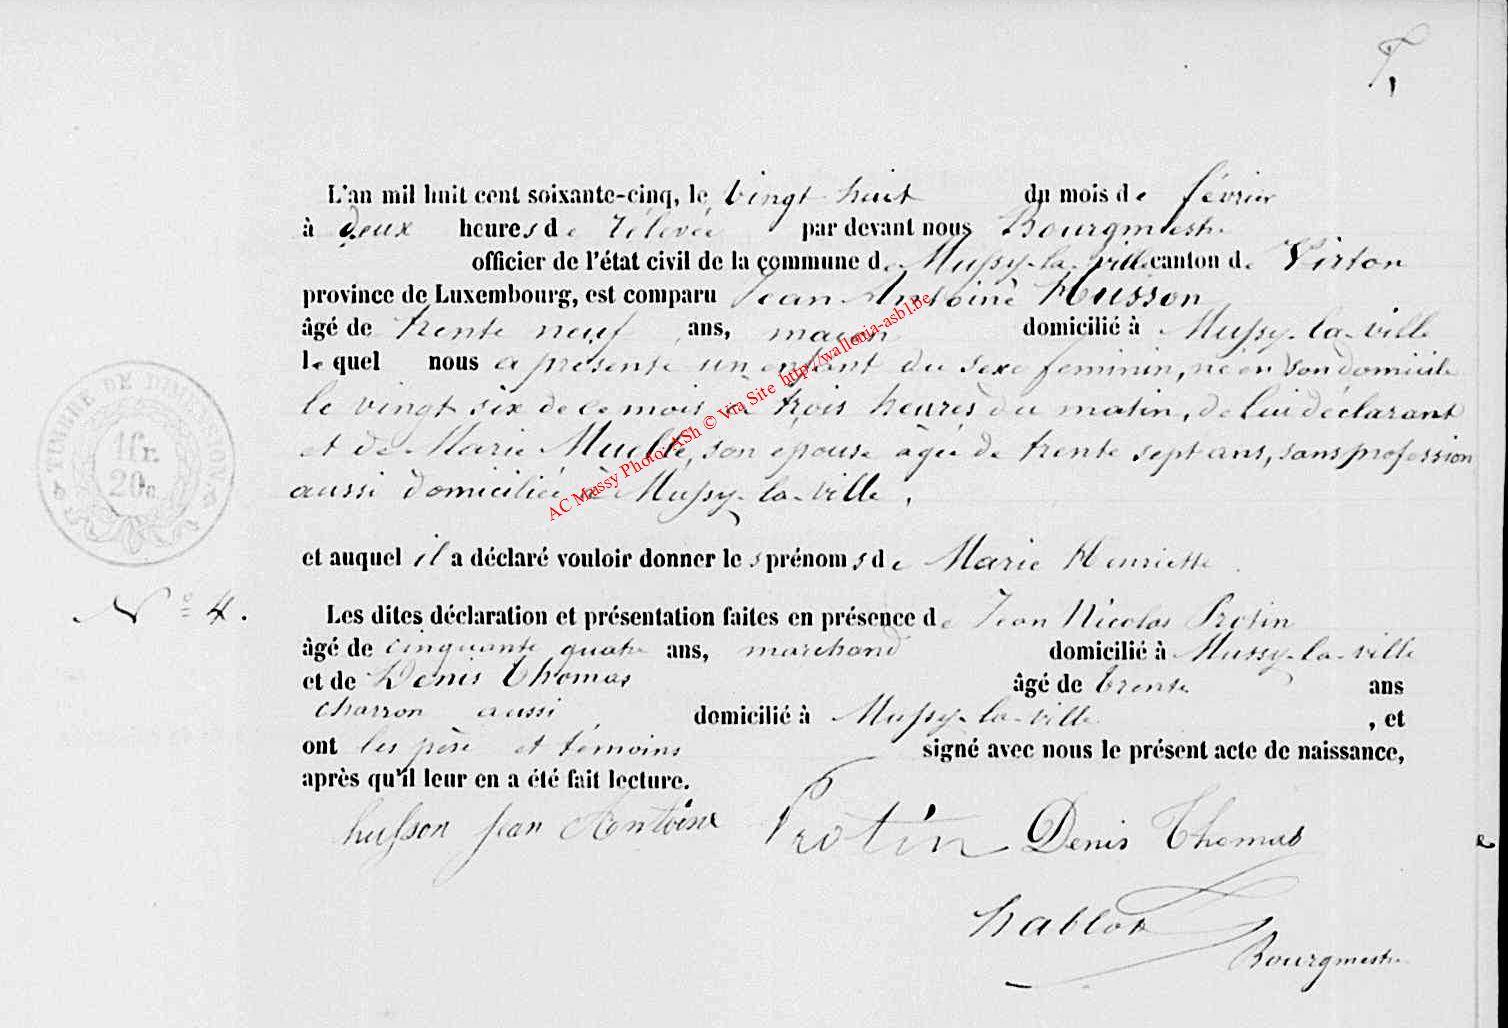 L'an mil huit cent soixante-cinq, le vingt huit du mois de février
à deux heures de rélevée par devant nous Bourgmestre
officier de l'état civil de la commune de Mussy-la-ville canton de Virton
province de Luxembourg, est comparu Jean Antoine Husson
âgé de trente neuf ans, maçon domicilié à Mussy-la-ville
le quel nous a présenté un enfant du sexe feminin, né en son domicile
le vingt six de ce mois à trois heures du matin, de lui déclarant
et de Marie, son épouse âgée de trente sept ans, sans profession
aussi domiciliée à Mussy-la-ville,
et auquel il a déclaré vouloir donner les prénoms de Marie Henriette.
N° 4.
Les dites déclaration et présentation faites en présence de Jean Nicolas Protin
âgé de cinquante quatre ans, marchand domicilié à Mussy-la-ville
et de Denis Thomas âgé de trente ans
charron aussi domicilié à Mussy-la-ville, et
ont les père et témoins signé avec nous le présent acte de naissance,
après qu'il leur en a été fait lecture.
husson jean Antoine Protin Denis Thomas
hablot
Bourgmestre
TIMBRE DE DIMENSION
1fr.
20c.
AC Mussy Photo ASh © Via Site http://wallonia-asbl.be